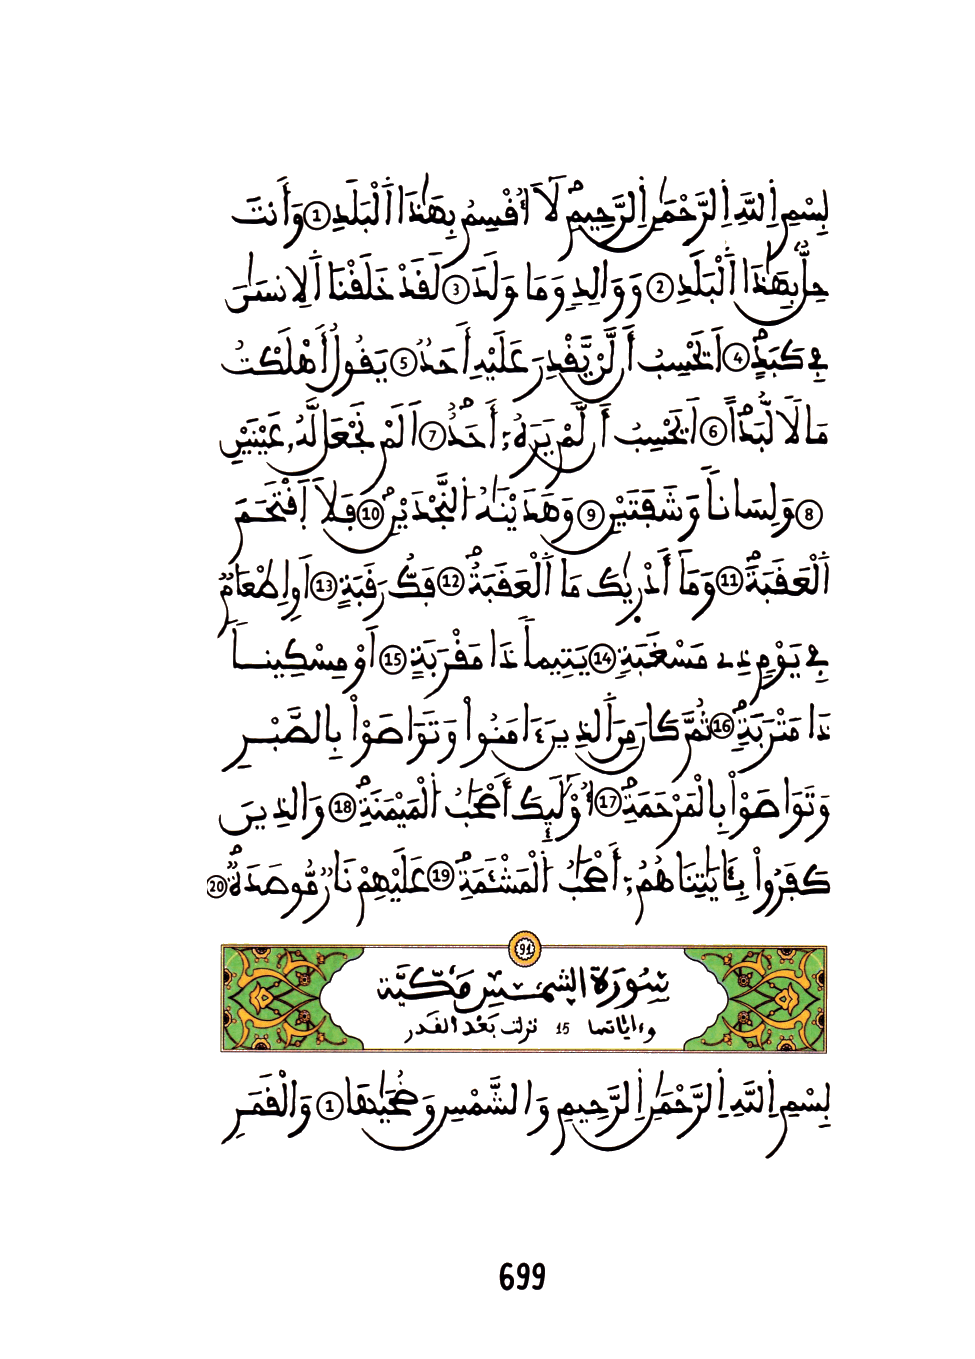 بِسْمِ اِ۬للَّهِ اِ۬لرَّحْمَٰنِ اِ۬لرَّحِيمِ لَآ أُقْسِمُ بِهَٰذَا اَ۬لْبَلَدِ 1 وَأَنتَ
حِلُّۢ بِهَٰذَا اَ۬لْبَلَدِ 2 وَوَالِدٖ وَمَا وَلَدَ 3 لَقَدْ خَلَقْنَا اَ۬لِانسَٰنَ
فِے كَبَدٍ 4 اَيَحْسِبُ أَن لَّنْ يَّقْدِرَ عَلَيْهِ أَحَدٞ 5 يَقُولُ أَهْلَكْتُ
مَالاٗ لُّبَداً 6 اَيَحْسِبُ أَن لَّمْ يَرَهُۥٓ أَحَدٌ 7 اَلَمْ نَجْعَل لَّهُۥ عَيْنَيْنِ
8 وَلِسَاناٗ وَشَفَتَيْنِ 9 وَهَدَيْنَٰهُ اُ۬لنَّجْدَيْنِ 10 فَلَا اَ۪قْتَحَمَ
اَ۬لْعَقَبَةَ 11 وَمَآ أَدْر۪يٰكَ مَا اَ۬لْعَقَبَةُ 12 فَكُّ رَقَبَةٍ 13 اَوِ اِطْعَٰمٞ
فِے يَوْمٖ ذِے مَسْغَبَةٖ 14 يَتِيماٗ ذَا مَقْرَبَةٍ 15 اَوْ مِسْكِيناٗ
ذَا مَتْرَبَةٖ 16 ثُمَّ كَانَ مِنَ اَ۬لذِينَ ءَامَنُواْ وَتَوَاصَوْاْ بِالصَّبْرِ
وَتَوَاصَوْاْ بِالْمَرْحَمَةِ 17 أُوْلَٰٓئِكَ أَصْحَٰبُ اُ۬لْمَيْمَنَةِ 18 وَالذِينَ
كَفَرُواْ بِـَٔايَٰتِنَا هُمُۥٓ أَصْحَٰبُ اُ۬لْمَشْـَٔمَةِ 19 عَلَيْهِمْ نَارٞ مُّوصَدَةٌ 20
91
سُورَةُ الشَّمْسِ مَكِّيَّة
وءاياتها 15 نزلت بَعْدَ القَدْر
بِسْمِ اِ۬للَّهِ اِ۬لرَّحْمَٰنِ اِ۬لرَّحِيمِ وَالشَّمْسِ وَضُحَيٰهَا 1 وَالْقَمَرِ
699